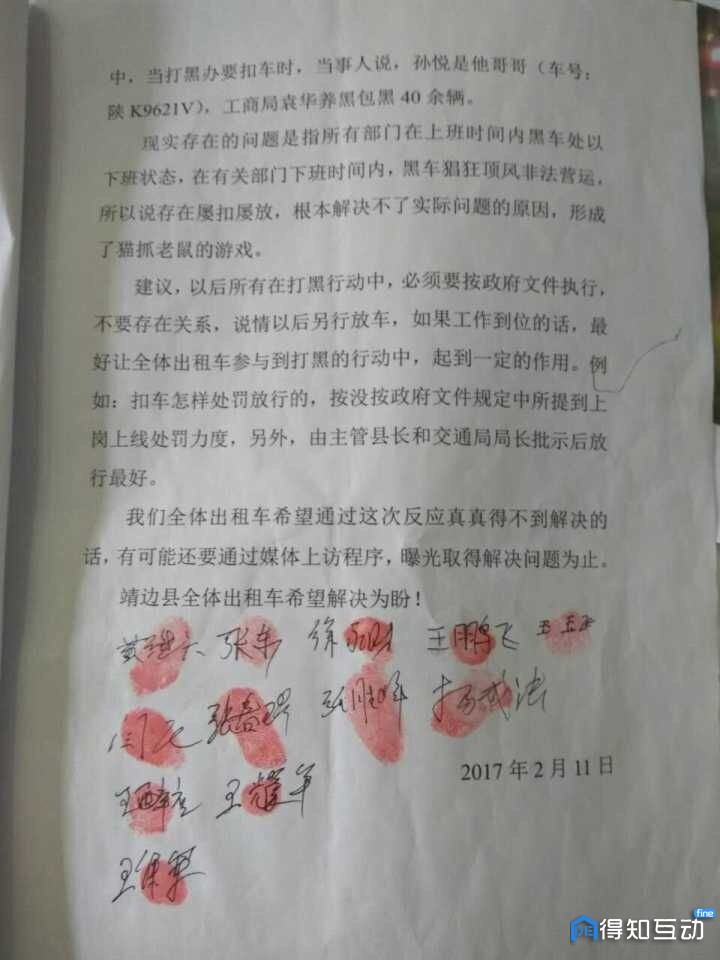 中，当打黑办要扣车时，当事人说，孙悦是他哥哥（车号：
陕 K9621V），工商局袁华养黑包黑 40 余辆。
现实存在的问题是指所有部门在上班时间内黑车处以
下班状态，在有关部门下班时间内，黑车猖狂顶风非法营运，
所以说存在屡扣屡放，根本解决不了实际问题的原因，形成
了猫抓老鼠的游戏。
建议，以后所有在打黑行动中，必须要按政府文件执行，
不要存在关系，说情以后另行放车，如果工作到位的话，最
好让全体出租车参与到打黑的行动中，起到一定的作用。例
如：扣车怎样处罚放行的，按没按政府文件规定中所提到上
岗上线处罚力度，另外，由主管县长和交通局局长批示后放
行最好。
我们全体出租车希望通过这次反应真真得不到解决的
话，有可能还要通过媒体上访程序，曝光取得解决问题为止。
靖边县全体出租车希望解决为盼！
张东 王鹏飞
张胜
王 王耀军
王
2017 年 2 月 11 日
得知互动
fine